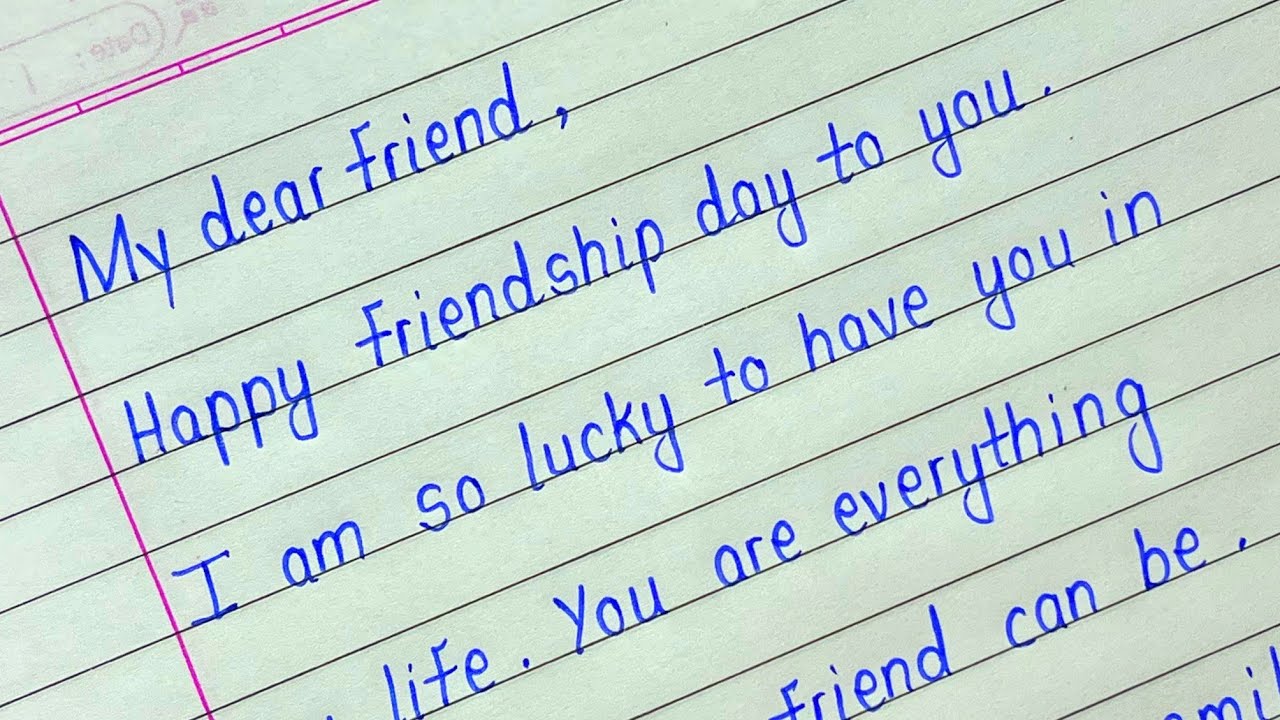 My dear friend,
Happy friendship day to you.
I am so lucky to have you in
life. You are everything
friend can be.